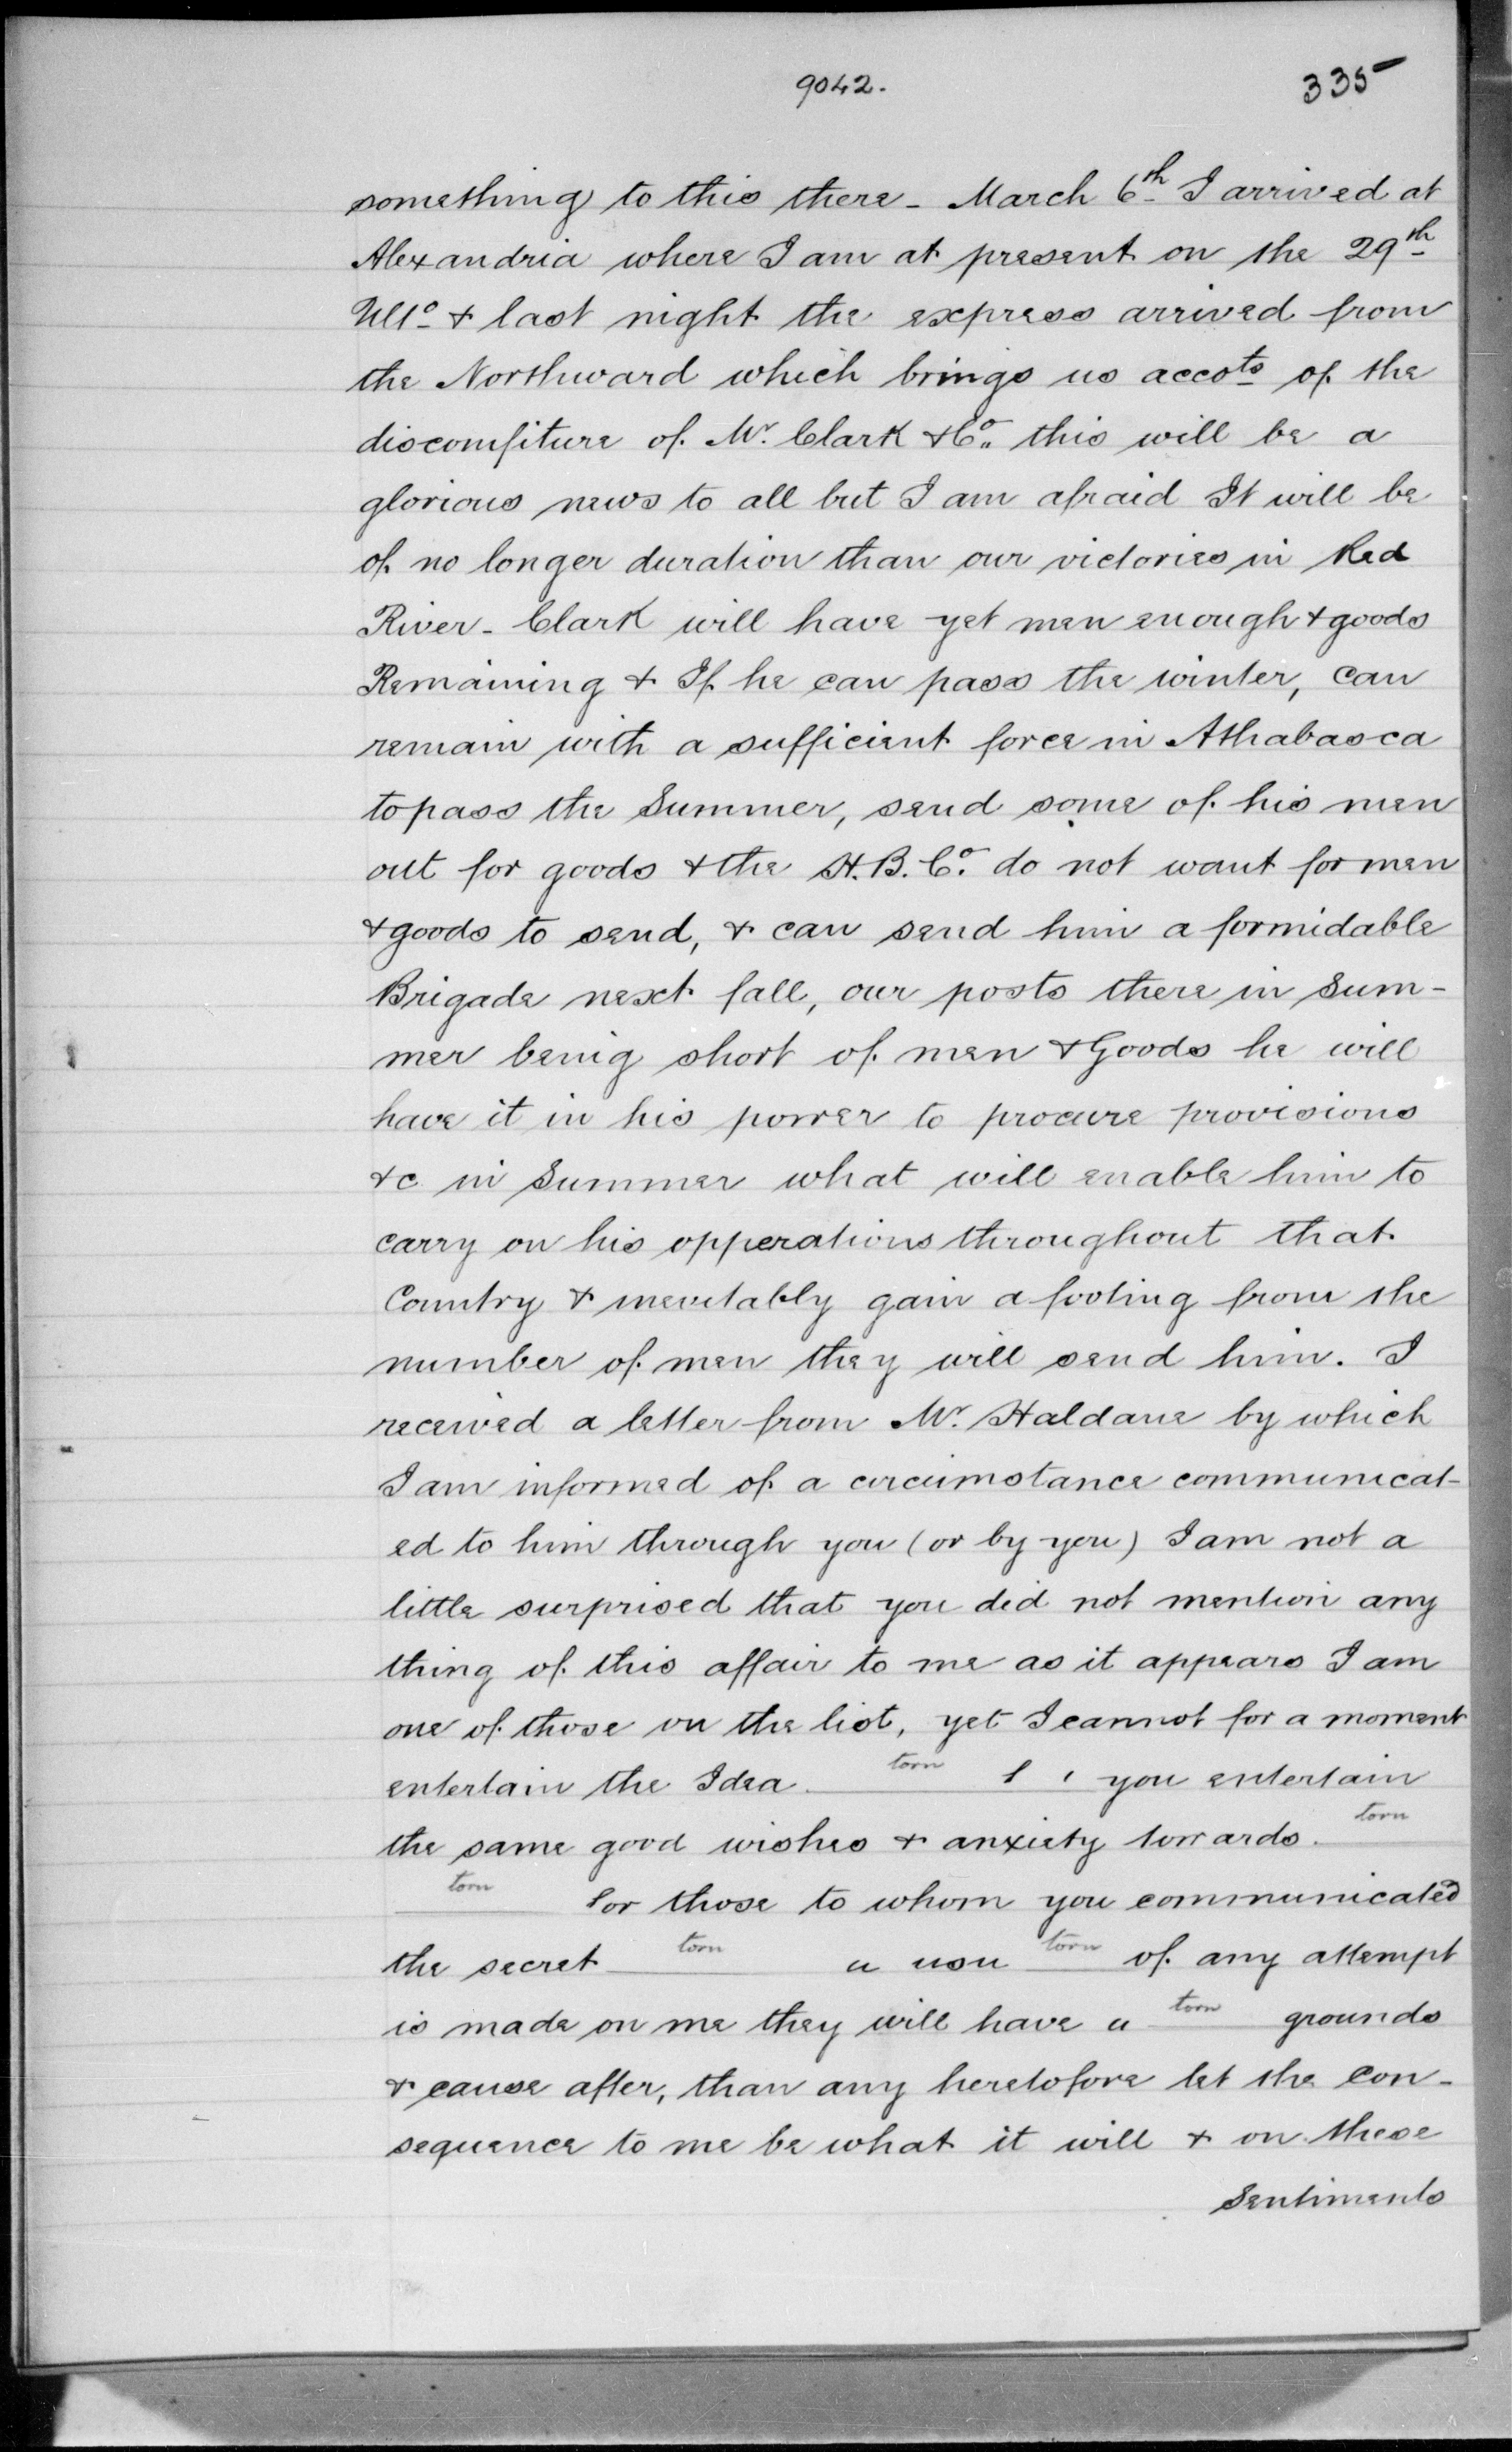 9042.
335
something to this there - March 6th I arrived at
Alexandria where I am at present on the 29th
Ulto & last night the express arrived from
the Northward which brings us accots of the
discomfiture of Mr. Clark & Co. this will be a
glorious news to all but I am afraid It will be
of no longer duration than our victories in Red
River - Clark will have yet men enough & goods
Remaining & If he can pass the winter, can
remain with a sufficient force in Athabasca
to pass the Summer, send some of his men
out for goods & the H. B. Co. do not want for men
& goods to send, & can send him a formidable
Brigade next fall, our posts there in Sum-
mer being short of men & Goods he will
have it in his power to procure provisions
&c in Summer what will enable him to
carry on his opperations throughout that
Country & inevitably gain a footing from the
number of men they will send him. I
received a letter from Mr. Haldane by which
I am informed of a circumstance communicat-
ed to him through you (or by you) I am not a
little surprised that you did not mention any
thing of this affair to me as it appears I am
one of those on the list, yet I cannot for a moment
entertain the Idea torn you entertain
the same good wishes & anxiety towards torn
torn for those to whom you communicated
the secret torn torn of any attempt
is made on me they will have a torn grounds
& cause after, than any heretofore let the con-
sequence to me be what it will & on these
Sentiments